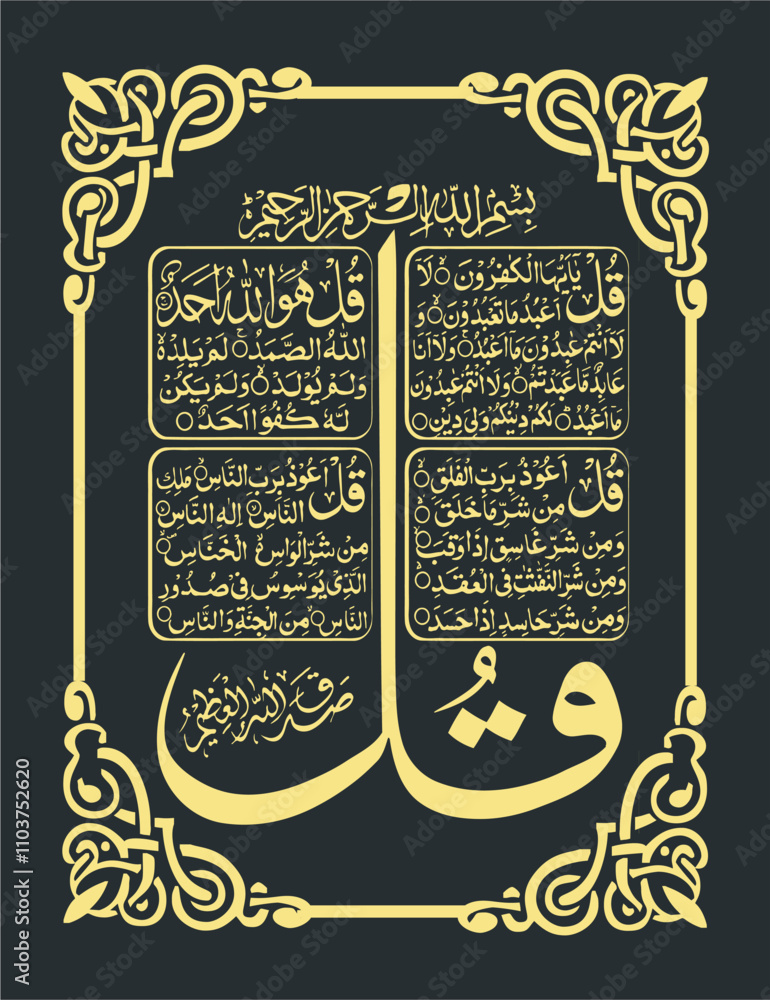 بِسْمِ اللهِ الرَّحْمٰنِ الرَّحِيْمِ
قُلْ يٰۤاَيُّهَا الْكٰفِرُوْنَ ۙ لَاۤ
اَعْبُدُ مَا تَعْبُدُوْنَ ۙ وَ
لَاۤ اَنْتُمْ عٰبِدُوْنَ مَاۤ اَعْبُدُ ۚ وَلَاۤ اَنَا
عَابِدٌ مَّا عَبَدْتُّمْ ۙ وَلَاۤ اَنْتُمْ عٰبِدُوْنَ
مَاۤ اَعْبُدُ ؕ لَكُمْ دِيْنُكُمْ وَلِيَ دِيْنِ
قُلْ هُوَ اللهُ اَحَدٌ ۚ
اَللهُ الصَّمَدُ ۚ لَمْ يَلِدْ ۙ
وَلَمْ يُوْلَدْ ۙ وَلَمْ يَكُنْ
لَّهٗ كُفُوًا اَحَدٌ
قُلْ اَعُوْذُ بِرَبِّ الْفَلَقِ ۙ
مِنْ شَرِّ مَا خَلَقَ ۙ
وَمِنْ شَرِّ غَاسِقٍ اِذَا وَقَبَ ۙ
وَمِنْ شَرِّ النَّفّٰثٰتِ فِي الْعُقَدِ ۙ
وَمِنْ شَرِّ حَاسِدٍ اِذَا حَسَدَ
قُلْ اَعُوْذُ بِرَبِّ النَّاسِ ۙ مَلِكِ
النَّاسِ ۙ اِلٰهِ النَّاسِ ۙ
مِنْ شَرِّ الْوَاسِ ۙ الْخَنَّاسِ ۙ
الَّذِيْ يُوَسْوِسُ فِيْ صُدُوْرِ
النَّاسِ ۙ مِنَ الْجِنَّةِ وَالنَّاسِ
صَدَقَ اللهُ الْعَظِيْمُ
قُلْ
Adobe Stock | #1103752620